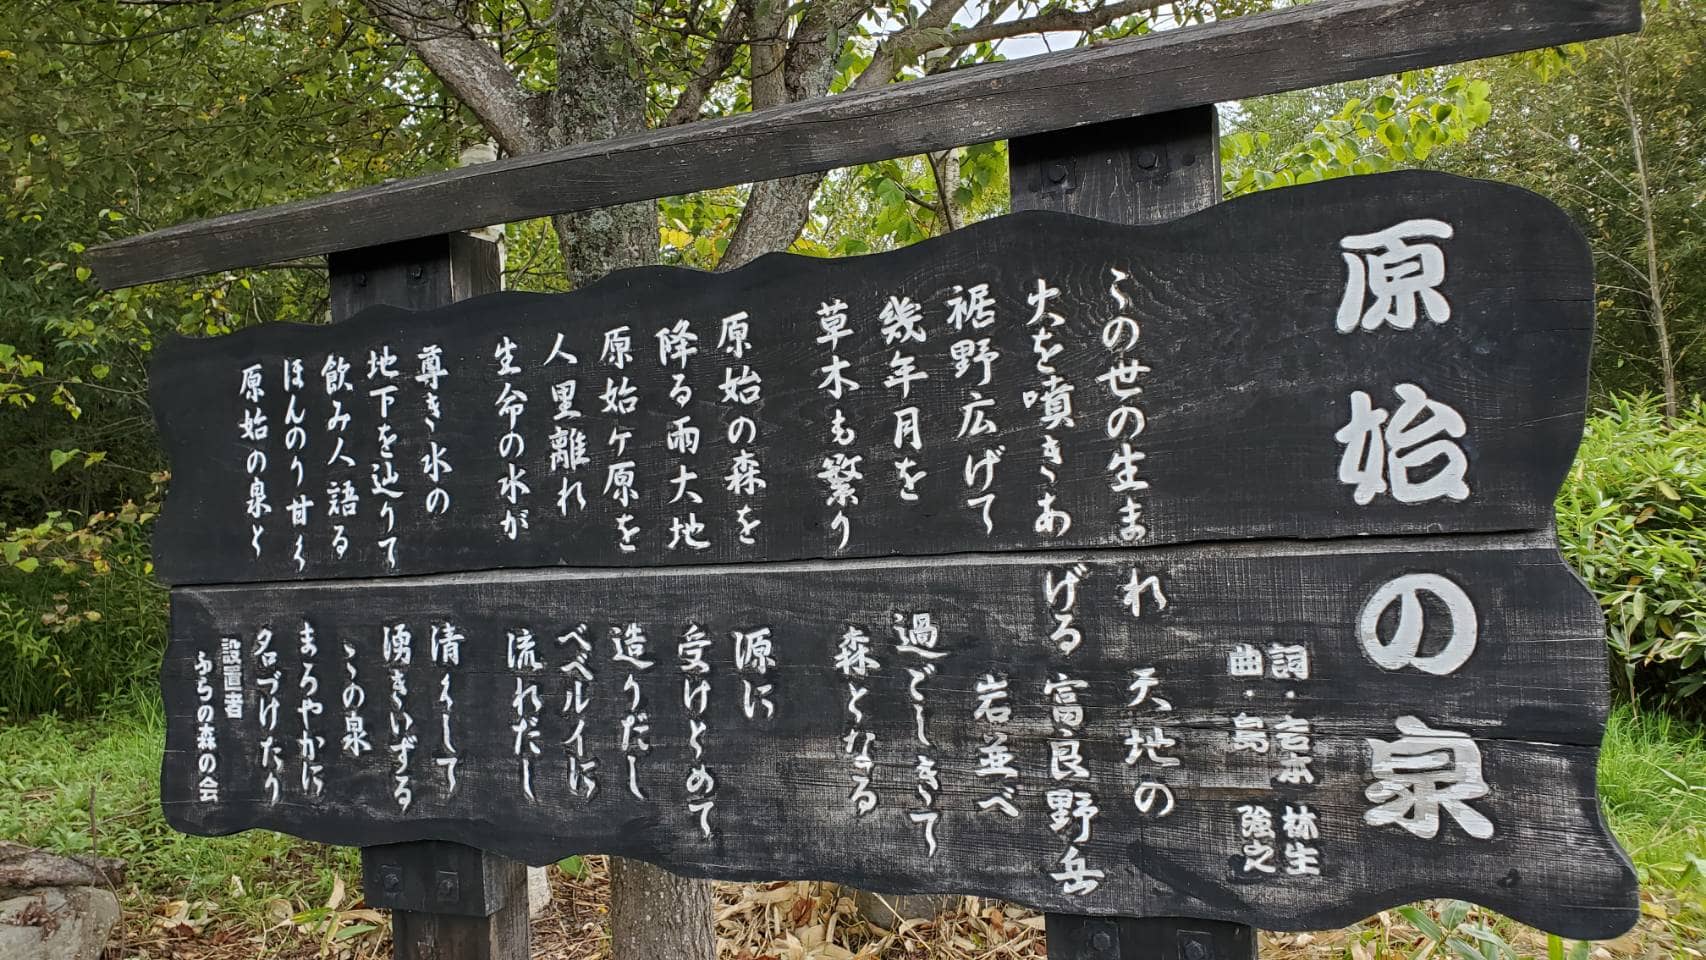 原始の泉
詞・岩本 林生
曲・島 強之
この世の生まれ 天地の
火を噴きあげる富良野岳
裾野広げて 岩並べ
幾年月を過ごしきて
草木も繁り森となる
原始の森を源に
降る雨大地受けとめて
原始ヶ原を造りだし
人里離れベベルイに
生命の水が流れだし
尊き水の清くして
地下を辿りて湧きいずる
飲み人語るこの泉
ほんのり甘くまろやかに
原始の泉と名づけたり
設置者
ふらの森の会